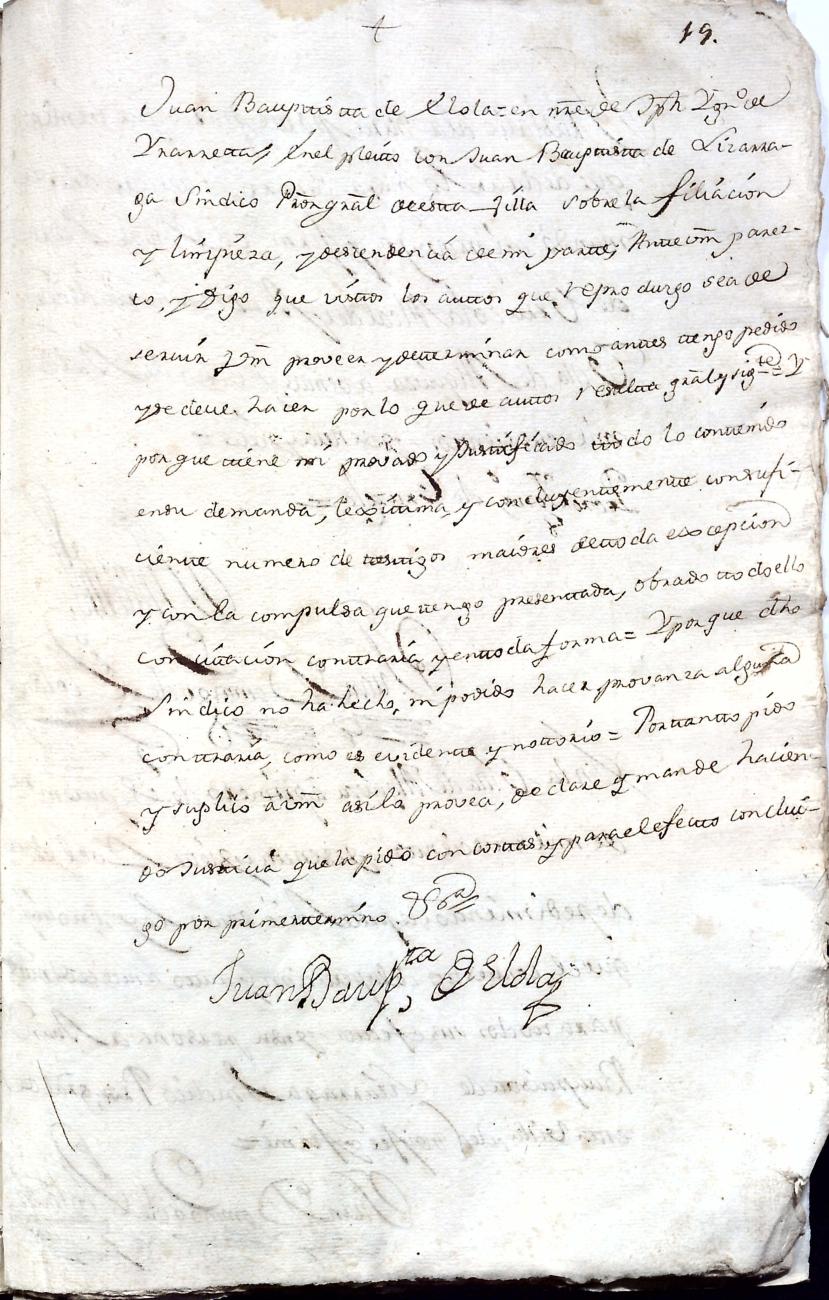 +
19.
Juan Bauptista de Elola = en nre. de Jph Ygnº de
Ynarretta, Enel pleito con Juan Bauptista de Lizarra-
ga Sindico Prôn grâl deesta Villa sobre la filiación
y limpieza, y desendencia de mi parte, Antevm̃ parez-
co, y Digo que vistos los auttos que reprodurgo sea de
servir Vm̃ proveer y detterminar como antes tengo pedido
y se deve hacer por lo que de auttos resulta grâl y sigte = Y
porque tiene mi provado y Justificado ttodo lo conttenido
ensu demanda, lexittima, y concluyentemente con sufi-
ciente numero de testigos maiores dettoda excepcion
y con la compulsa que tengo presenttada, obrado ttodo ello
con cittación conttraria y en ttoda forma = Y porque dho
Sindico no ha hecho, ni podido hacer provanza alguna
conttraria, como es evidente y nottorio = Porttantto pido
y suplico a vm̃ asi la provea, declare y mande hacien-
do Justticia que la pido con costtas y para el efectto conclui-
go por primer termino
Juan Baupta de Elola